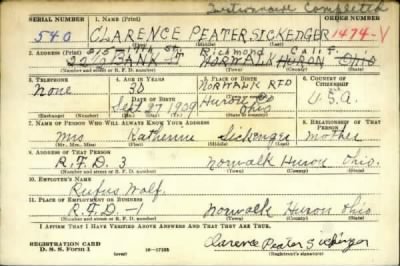 Questionnaire Completed
SERIAL NUMBER 1. NAME (Print) ORDER NUMBER
540 CLARENCE PEATER SICKENGER 1474-V
(First) (Middle) (Last)
2. ADDRESS (Print) Richmond Calif.
BANK ST NORWALK HURON Ohio
(Number and street or R. F. D. number) (Town) (County) (State)
3. TELEPHONE 4. AGE IN YEARS 5. PLACE OF BIRTH 6. COUNTRY OF CITIZENSHIP
None 30 NORWALK RFD
DATE OF BIRTH Huron Co U.S.A.
Sept 27 1909 Ohio
(Exchange) (Number) (Mo.) (Day) (Yr.) (State or country)
7. NAME OF PERSON WHO WILL ALWAYS KNOW YOUR ADDRESS 8. RELATIONSHIP OF THAT PERSON
Mrs Katherine Sickenger mother
(Mr., Mrs., Miss) (First) (Middle) (Last)
9. ADDRESS OF THAT PERSON
R.F.D. 3 Norwalk Huron Ohio.
(Number and street or R. F. D. number) (Town) (County) (State)
10. EMPLOYER'S NAME
Rufus Wolf.
11. PLACE OF EMPLOYMENT OR BUSINESS
R.F.D-1 Norwalk Huron Ohio
(Number and street or R. F. D. number) (Town) (County) (State)
I AFFIRM THAT I HAVE VERIFIED ABOVE ANSWERS AND THAT THEY ARE TRUE.
REGISTRATION CARD
D. S. S. Form 1 16-17105 Clarence Peater Sickenger
(Registrant's signature)